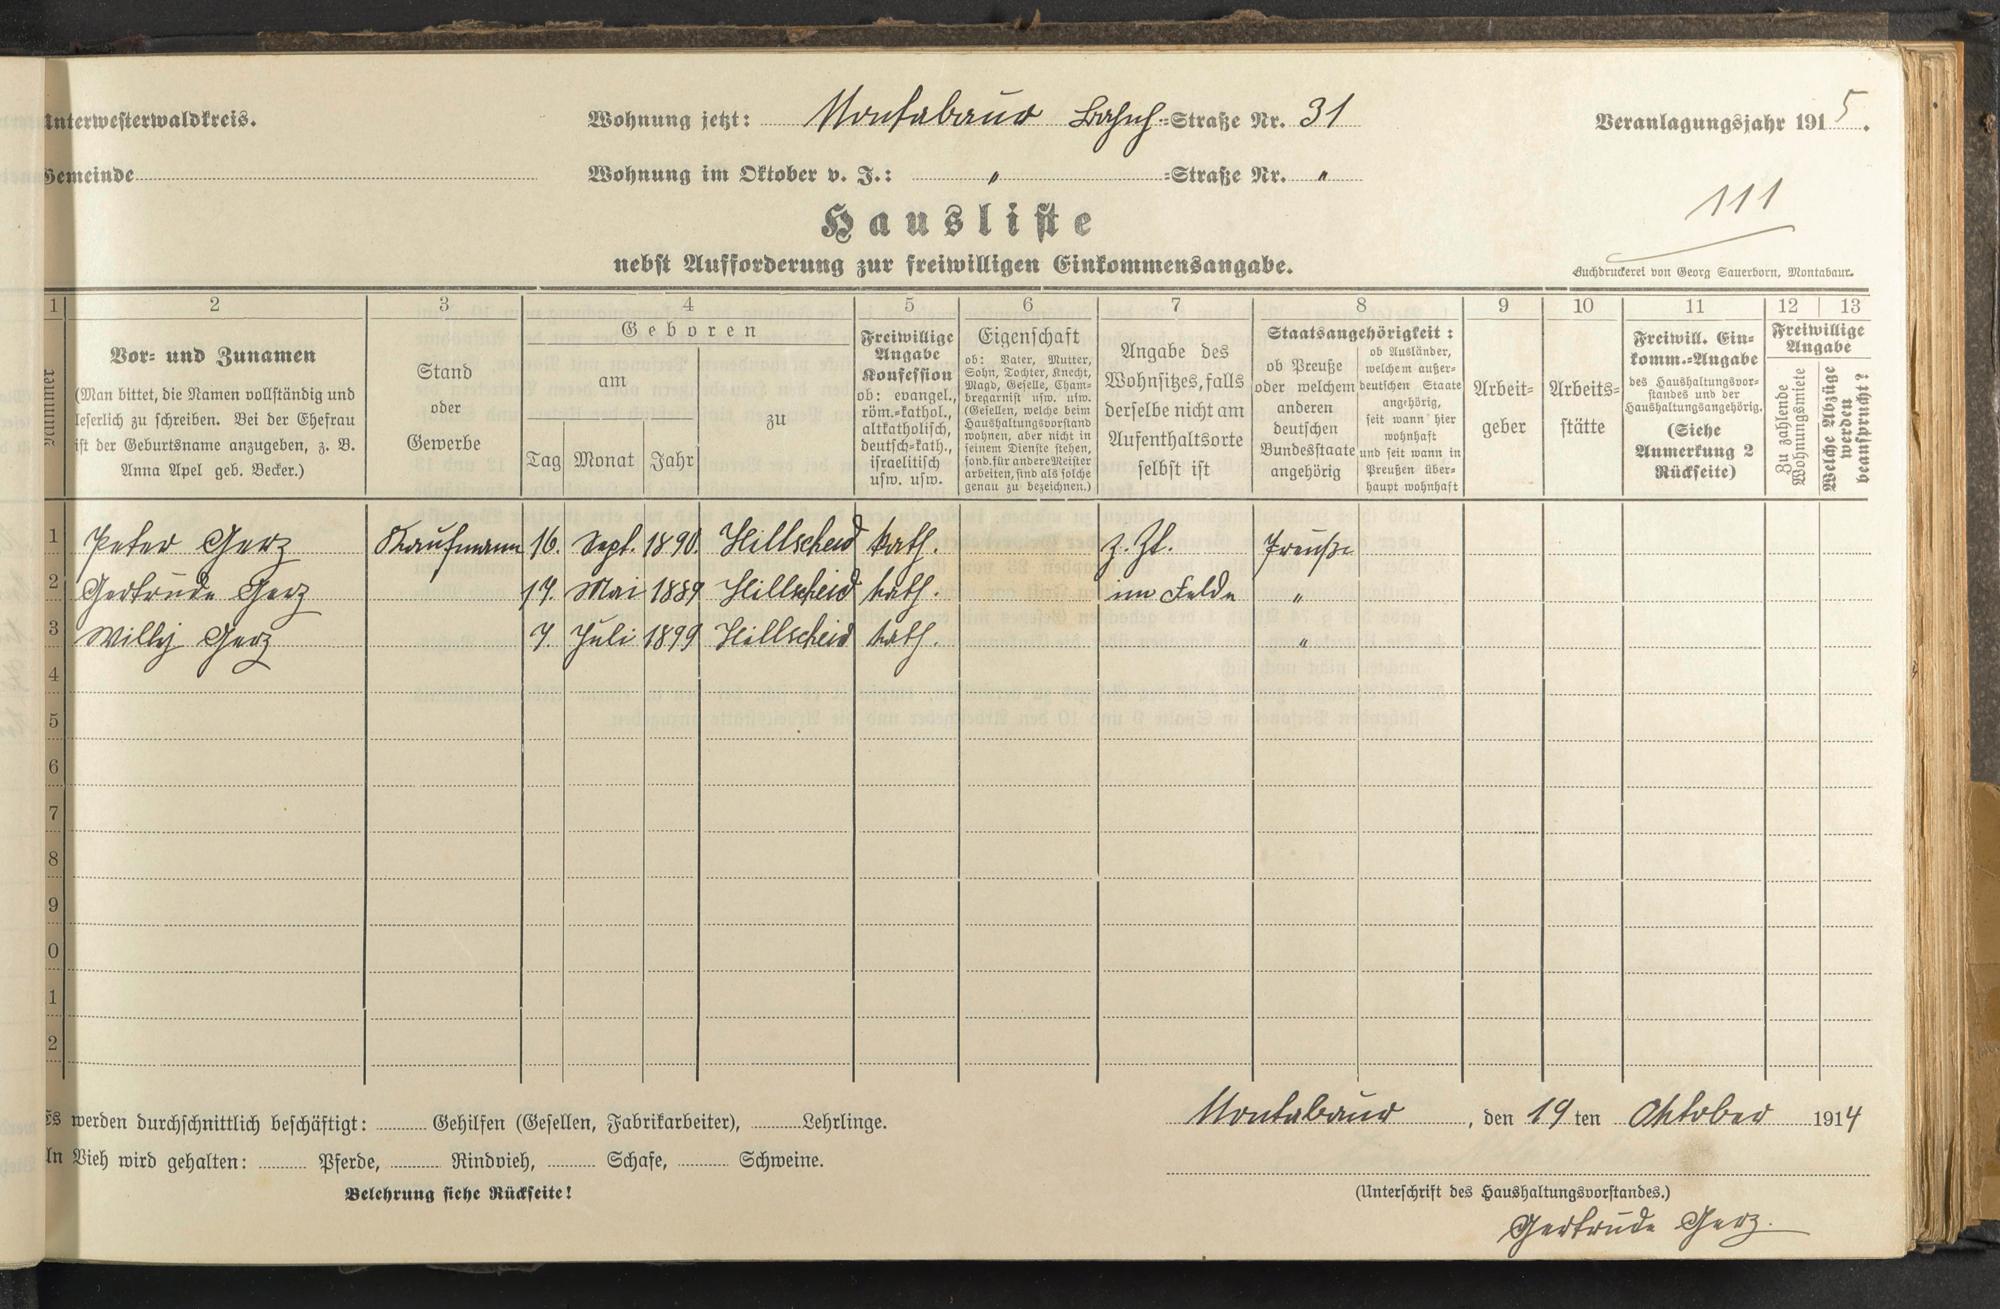 Unterwesterwaldkreis. Wohnung jetzt: Montabaur Bahnh=Straße Nr. 31 Veranlagungsjahr 1915.
Gemeinde Wohnung im Oktober v. J.: " =Straße Nr. "
111
Hausliste
nebst Aufforderung zur freiwilligen Einkommensangabe.
Buchdruckerei von Georg Sauerborn, Montabaur.
1 2 3 4 5 6 7 8 9 10 11 12 13
Nummer
Vor- und Zunamen
(Man bittet, die Namen vollständig und
leserlich zu schreiben. Bei der Ehefrau
ist der Geburtsname anzugeben, z. B.
Anna Apel geb. Becker.)
Stand
oder
Gewerbe
Geboren
am
Tag Monat Jahr
zu
Freiwillige
Angabe
Konfession
ob: evangel.,
röm.-kathol.,
altkatholisch,
deutsch-kath.,
israelitisch
usw. usw.
Eigenschaft
ob: Vater, Mutter,
Sohn, Tochter, Knecht,
Magd, Geselle, Cham-
bregarnist usw. usw.
(Gesellen, welche beim
Haushaltungsvorstand
wohnen, aber nicht in
seinem Dienste stehen,
sond. für andere Meister
arbeiten, sind als solche
genau zu bezeichnen.)
Angabe des
Wohnsitzes, falls
derselbe nicht am
Aufenthaltsorte
selbst ist
Staatsangehörigkeit:
ob Preuße
oder welchem
anderen
deutschen
Bundesstaate
angehörig
ob Ausländer,
welchem außer-
deutschen Staate
angehörig,
seit wann hier
wohnhaft
und seit wann in
Preußen über-
haupt wohnhaft
Arbeit-
geber
Arbeits-
stätte
Freiwill. Ein-
komm.-Angabe
des Haushaltungsvor-
standes und der
Haushaltungsangehörig.
(Siehe
Anmerkung 2
Rückseite)
Freiwillige
Angabe
Zu zahlende
Wohnungsmiete
Welche Abzüge
werden
beansprucht?
1 Peter Gerz Kaufmann 16. Sept. 1890. Hillscheid kath. z. Zt. Preuße
2 Gertrude Gerz 17. Mai 1889 Hillscheid kath. im Felde "
3 Willy Gerz 7. Juli 1899 Hillscheid kath. "
4
5
6
7
8
9
0
1
2
Es werden durchschnittlich beschäftigt: Gehilfen (Gesellen, Fabrikarbeiter), Lehrlinge.
An Vieh wird gehalten: Pferde, Rindvieh, Schafe, Schweine.
Belehrung siehe Rückseite!
Montabaur, den 19ten Oktober 1914
(Unterschrift des Haushaltungsvorstandes.)
Gertrude Gerz.